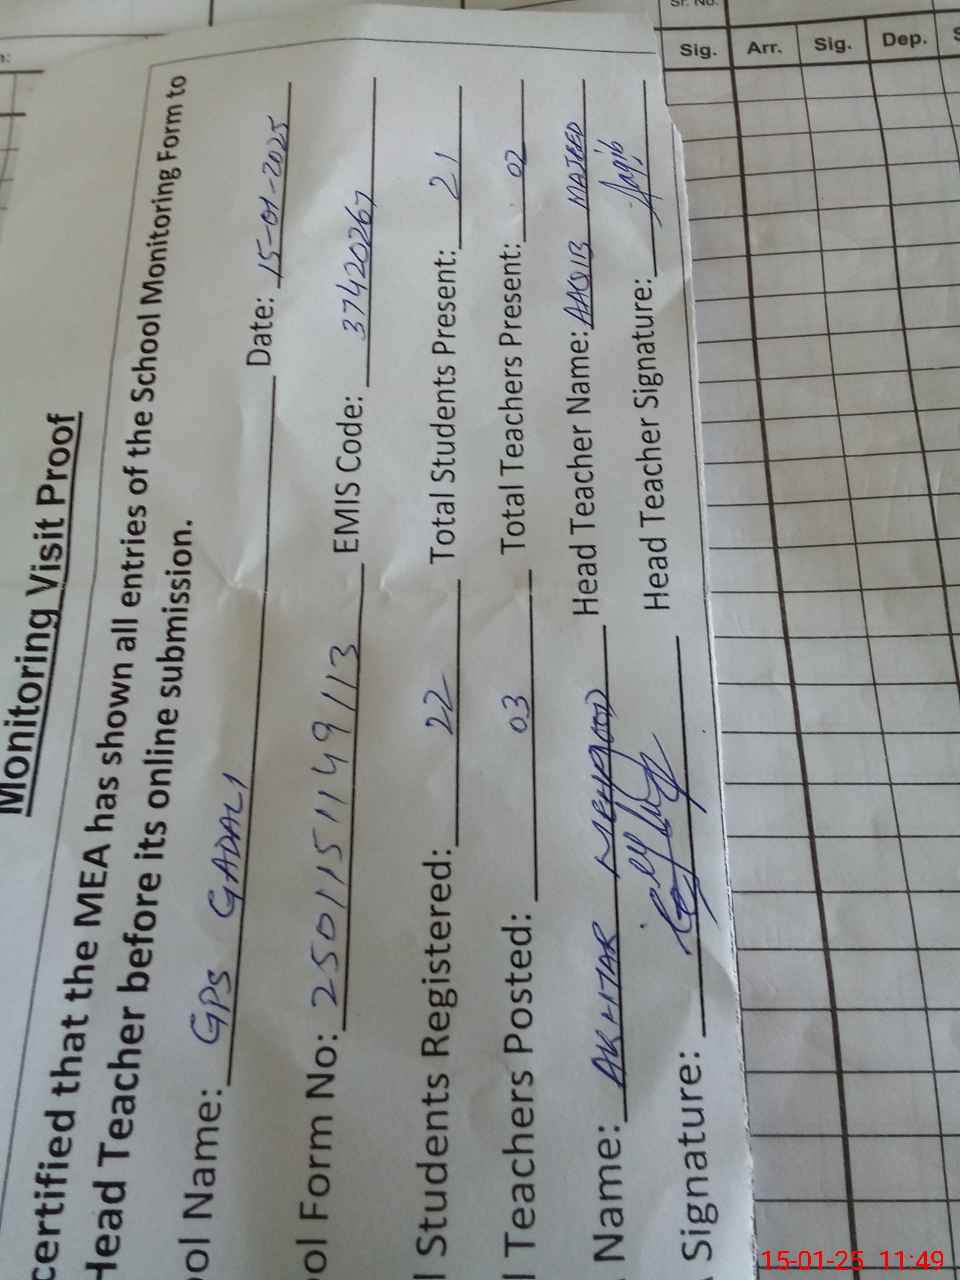 Monitoring Visit Proof
certified that the MEA has shown all entries of the School Monitoring Form to
Head Teacher before its online submission.
ool Name: GPS GADALI Date: 15-01-2025
ool Form No: 2501151149113 EMIS Code: 37420267
l Students Registered: 22 Total Students Present: 21
l Teachers Posted: 03 Total Teachers Present: 02
Name: AKHTAR MEHMOOD Head Teacher Name: AAQIB MAJEED
Signature: Head Teacher Signature: Aaqib
Sr. No.
Sig. Arr. Sig. Dep.
15-01-25 11:49